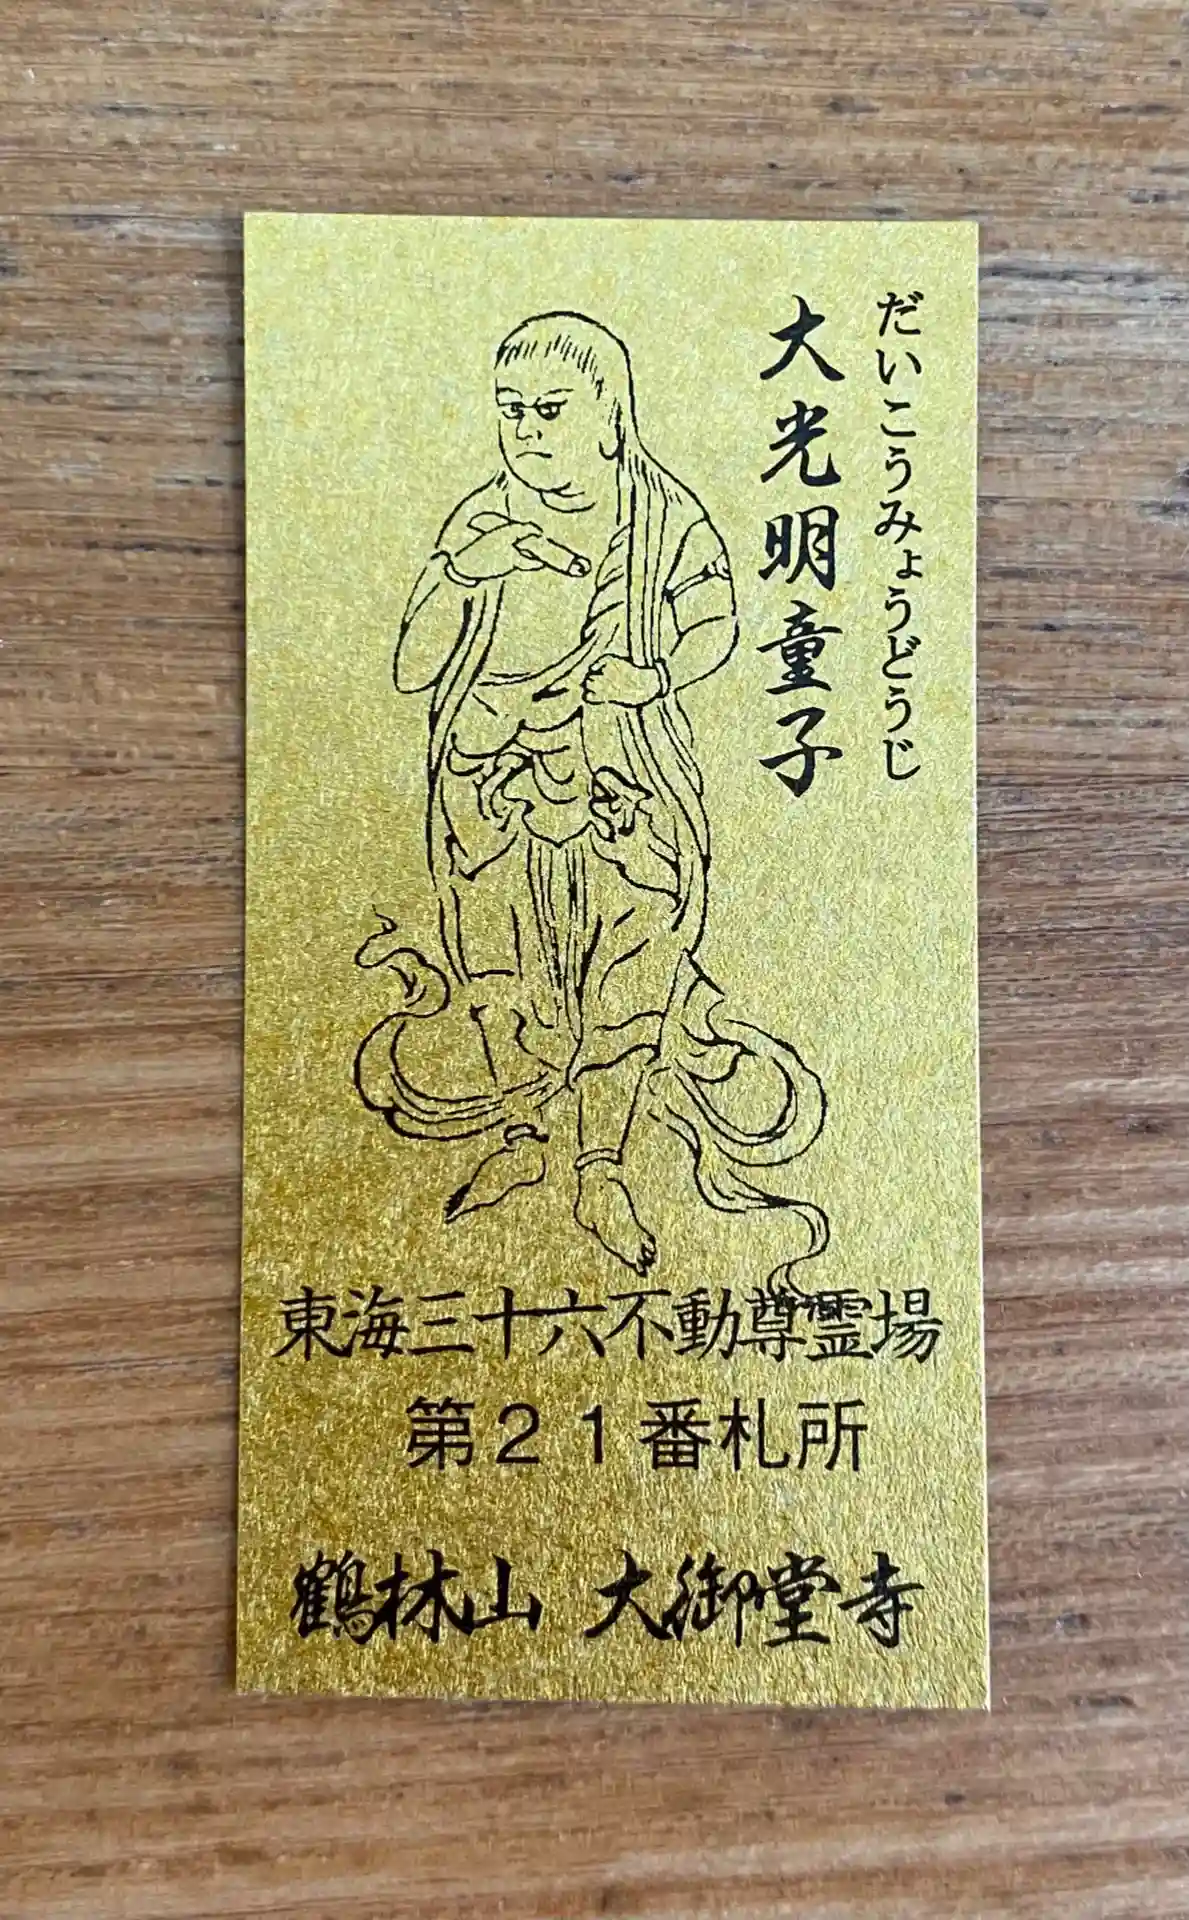 だいこうみょうどうじ
大光明童子
東海三十六不動尊霊場
第21番札所
鶴林山 大御堂寺